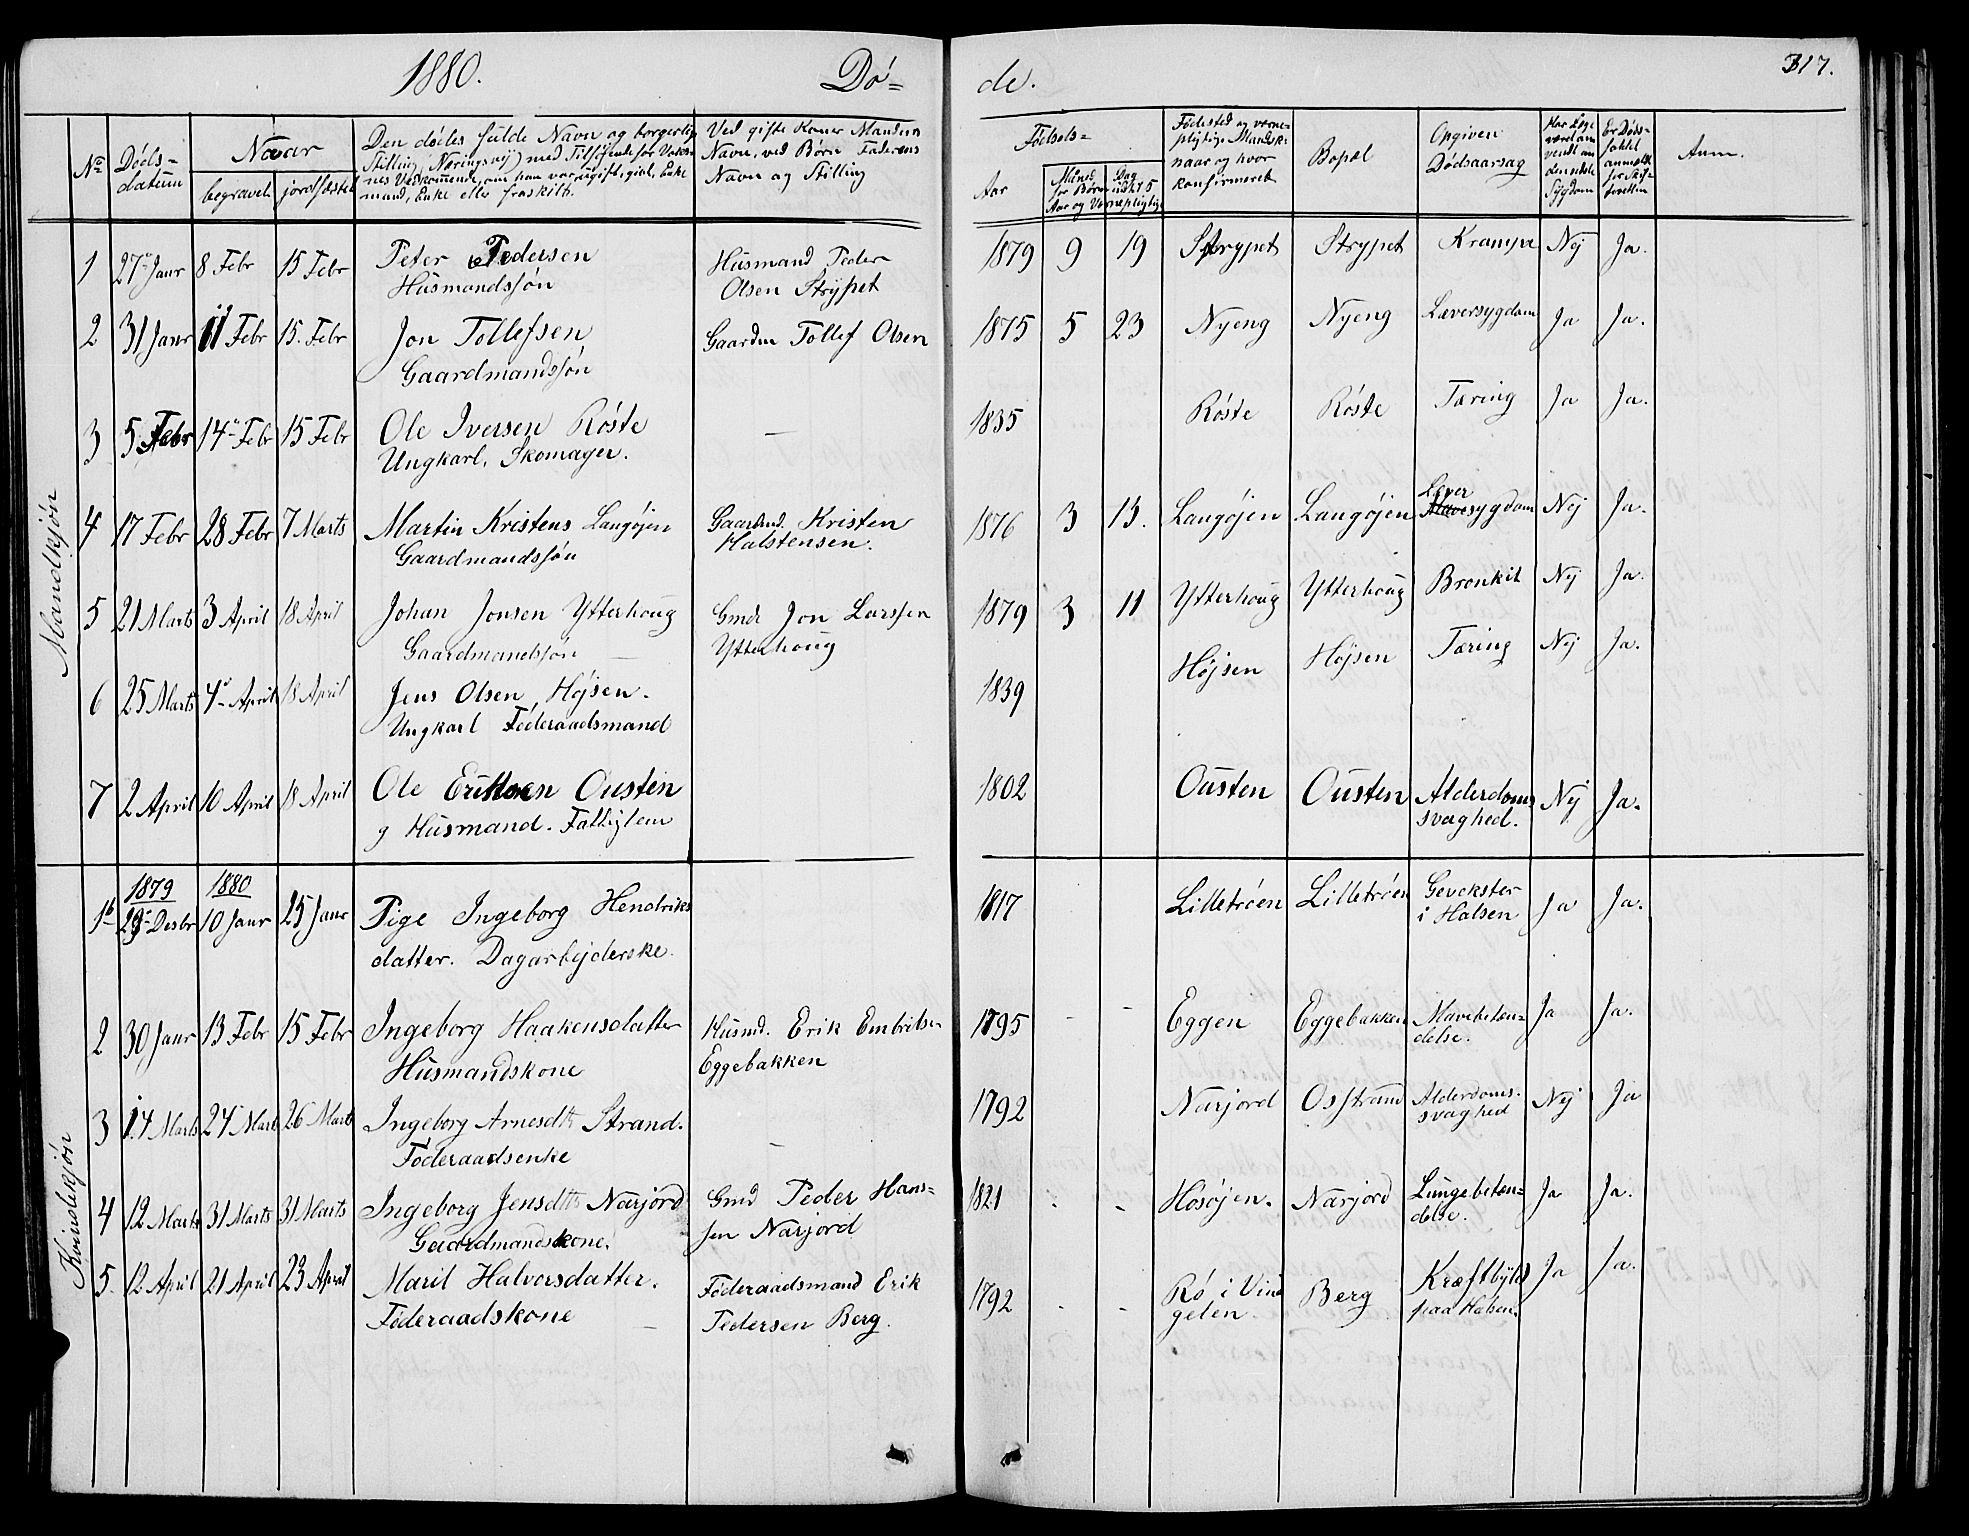 1880.
Dø=
de.
317.
No
Døds=
datum
Naar
begravet
jordfæstet
Den dødes fulde Navn og borgerlige
Stilling (Næringsvej) med Tilføjende for Voks-
nes Vedkommende, om han var ugift, gift, Enke
mand, Enke eller fraskilt.
Ved gifte Koner Mandens
Navn, ved Børn Faderens
Navn og Stilling
Fødsels=
Aar
Maaned
for Børn
Dag
indtil 5
Aar og Vernepligtige
Fødested og verne-
pligtige Mandsk:
naar og hvor
konfirmeret
Bopæl
Opgiven
Dødsaarsag
Har Læge
været an
vendt un
den sidste
Sygdom
Er Døds-
faldet
anmeldt
for Skif-
teretten
Anm.
Mandkjøn
1 27 Janr 8 Febr 15 Febr Peter Pedersen Husmand Peder 1879 9 19 Strypet Strypet Krampe Nej Ja.
Husmandssøn Olsen Strypet
2 31 Janr 11 Febr 15. Febr Jon Tollefsen Gaardm Tollef Olsen 1875 5 23 Nyeng Nyeng Leversygdom Ja Ja.
Gaardmandssøn
3 5 Febr 14 Febr 15 Febr Ole Iversen Røste — 1835 Røste Røste Tæring Ja Ja.
Ungkarl, Skomager.
4 17 Febr 28 Febr 7 Marts Martin Kristens Langøjen Gaardmd. Kristen 1876 3 13. Langøjen Langøjen Lever
sygdom Nej Ja.
Gaardmandssøn Halstensen.
5 21 Marts 3 April 18 April Johan Jonsen Ytterhoug Gmd Jon Larssen 1879 3 11 Ytterhoug Ytterhoug Bronkit Nej Ja.
Gaardmandssøn — Ytterhoug
6 25 Marts 4 April 18 April Jens Olsen Højsen. 1839 Højsen Højsen Tæring Nej Ja.
Ungkarl Føderaadsmand
7 2 April 10 April 18 April Ole Eriksen Ousten 1802 Ousten Ousten Alderdoms Nej Ja.
g Husmand. Fattiglem svaghed.
Kvindekjøn
1879 1880
1 29 Desbr 10 Janr 25 Janr Pige Ingeborg Hendriks 1817 Lilletrøen Lilletrøen Gevekster Ja Ja.
datter. Dagarbejderske. i Halsen
2 30 Janr 13 Febr 15 Febr Ingeborg Haakensdatter Husmd. Erik Embritsen 1795 - - Eggen Eggebakken Mavebetæn= Ja Ja.
Husmandskone Eggebakken delse.
3 14 Marts 24 Marts 26 Marts Ingeborg Arnesdtr Strand. — 1792 Narjord Osstrand Alderdoms. Nej Ja
Føderaadsenke svaghed
4 12 Marts 31 Marts 31 Marts Ingeborg Jensdtr Narjord Gmd Peder Hans= 1821 Hosøjen. Narjord Lungebetæn= Ja Ja.
Gaardmandskone. sen Narjord delse.
5. 12 April 21 April 23 April Marit Halvorsdatter. Føderaadsmand Erik 1792 - - Rø i Vin Berg Kræftbyld Ja Ja.
Føderaadskone — Pedersen Berg. gelen. paa Halsen.